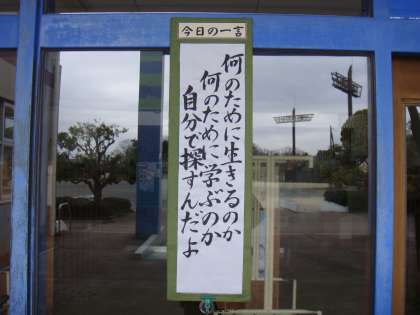 今日の一言
何のために生きるのか
何のために学ぶのか
自分で探すんだよ